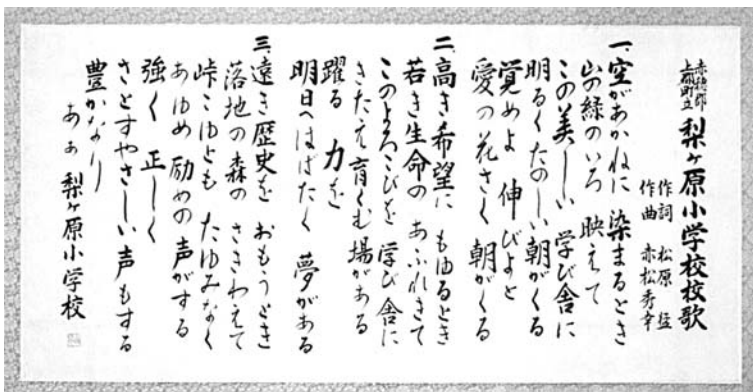 赤穂郡
上郡町立
梨ヶ原小学校校歌
作詞 松原 猛
作曲 赤松秀幸
一、空があかねに 染まるとき
山の緑のいろ 映えて
この美しい 学び舎に
明るくたのしい朝がくる
覚めよ 伸びよと
愛の花さく 朝がくる
二、高き希望に もゆるとき
若き生命の あふれきて
このよろこびを 学び舎に
きたえ育くむ 場がある
躍る 力を
明日へはばたく 夢がある
三、遠き歴史を おもうとき
落地の森の さきわえて
峠こゆとも たゆみなく
あゆめ 励めの 声がする
強く 正しく
さとすやさしい 声もする
豊かなり
あゝ 梨ヶ原小学校